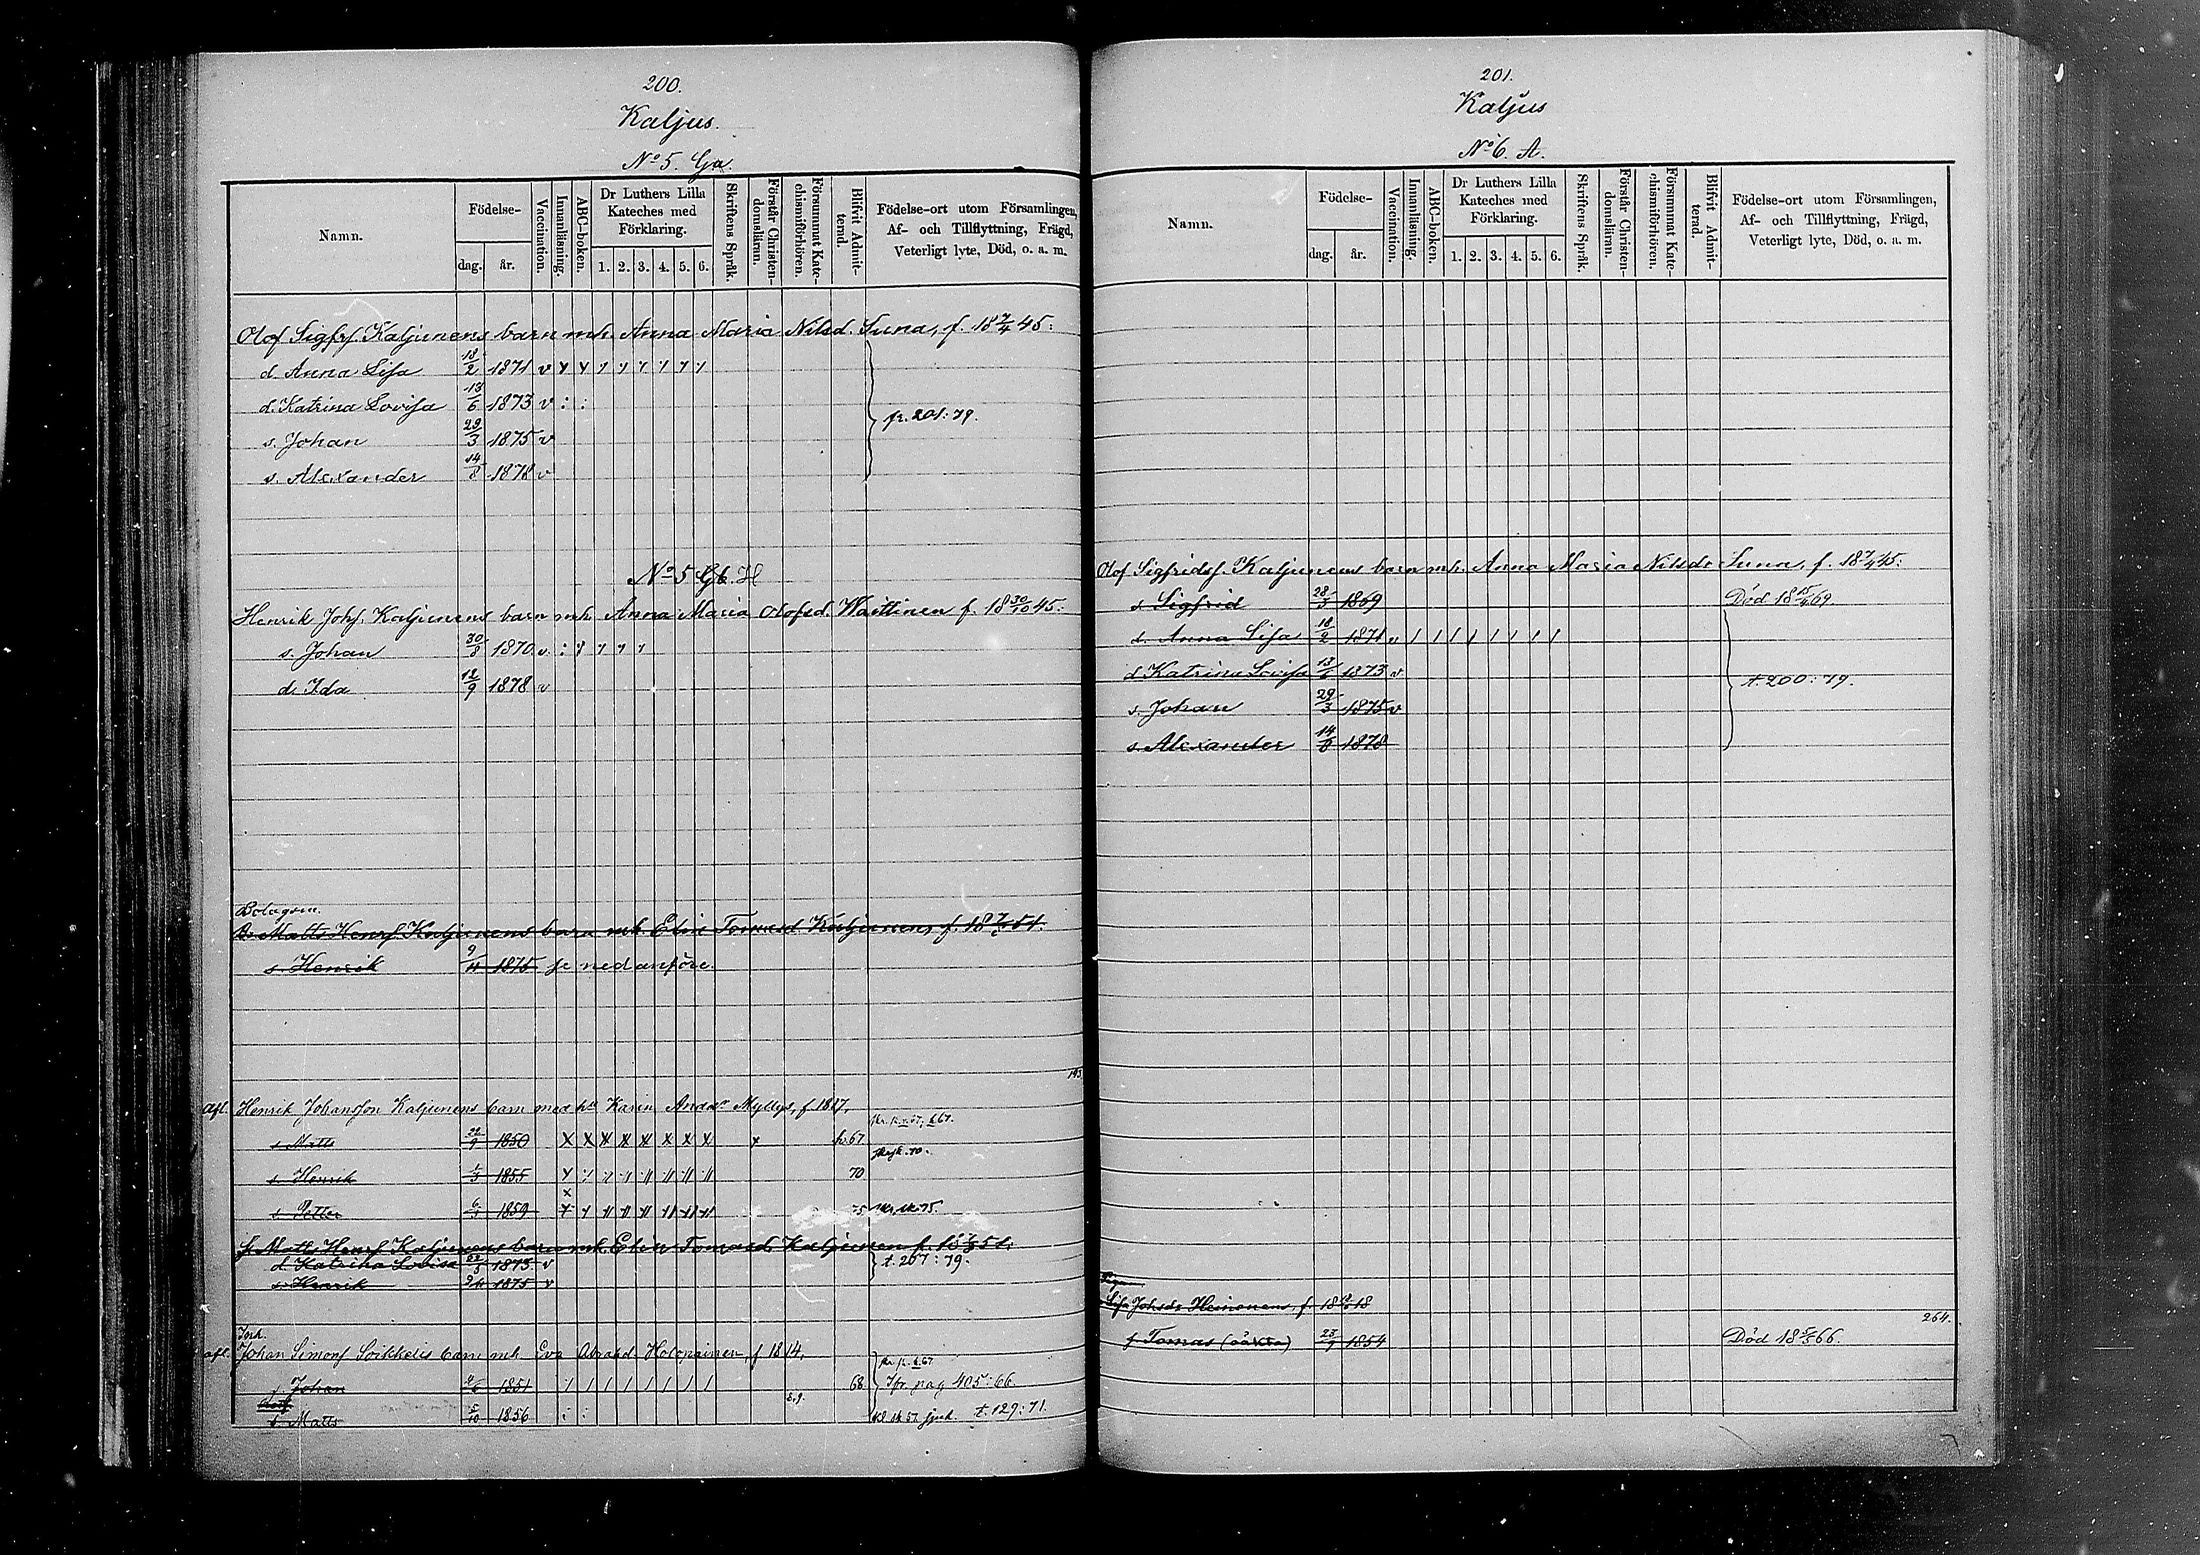 200.
Kaljus.
No 5. Ga.
Namn.
Födelse-
dag. år.
Vaccination.
Innanläsning.
ABC-boken.
Dr Luthers Lilla Kateches med Förklaring.
1. 2. 3. 4. 5. 6.
Skriftens Språk.
Förstår Christendomsläran.
Försummat Katechismiförhören.
Blifvit Admitterad.
Födelse-ort utom Församlingen,
Af- och Tillflyttning, Frägd,
Veterligt lyte, Död, o. a. m.
Olof Sigfrs. Kaljunens barn mh. Anna Maria Nilsd. Suna, f. 18 7/4 45:
d. Anna Lisa 18/2 1871 v
d. Katrina Lovisa 13/6 1873 v : :
s. Johan 29/3 1875 v
fr. 201:79.
s. Alexander 14/8 1878 v
No 5 Gb. H
Henrik Johs. Kaljunens barn mh. Anna Maria Olofsd. Waittinen f. 18 30/10 45:
s. Johan 30/8 1870 v
d. Ida 12/9 1878 v
Bolagsm.
Matts Henrs Kaljunens barn mh. Elin Tomasd Kaljunen, f. 18 51.
s. Henrik 9/11 1875 se nedanföre.
afl. Henrik Johansson Kaljunens barn med hu Karin Andsdr Myllys, f. 1817,
s. Matts 22/9 1850 h. 67
s. Henrik 1855 70
s. Petter 1859 75
Matts Henrs Kaljunens barn mh. Elin Tomasd Kaljunen f. 18 51.
d. Katrina Lovisa 1873 v t. 207:79.
s. Henrik 9/11 1875 v
Inh.
afl. Johan Simons Soikkelis barn mh. Eva Abrahd. Holopainen, f 1814,
s. Johan 1851 68 Ifr. pag 405:66.
s. Matts 5/10 1856 : : t. 129:71.
201.
Kaljus
No 6. A.
Namn.
Födelse-
dag. år.
Vaccination.
Innanläsning.
ABC-boken.
Dr Luthers Lilla Kateches med Förklaring.
1. 2. 3. 4. 5. 6.
Skriftens Språk.
Förstår Christendomsläran.
Försummat Katechismiförhören.
Blifvit Admitterad.
Födelse-ort utom Församlingen,
Af- och Tillflyttning, Frägd,
Veterligt lyte, Död, o. a. m.
Olof Sigfridss. Kaljunens barn mh. Anna Maria Nilsdr Suna, f. 18 7/4 45:
s. Sigfrid 28/3 1869 Död 18 15/4 69.
d. Anna Lisa 18/2 1871 v
d. Katrina Lovisa 13/6 1873 v
t. 200:79.
s. Johan 29/3 1875 v
s. Alexander 14/8 1878
Lisa Johsdr Heinonens, f. 18 18
264.
s. Tomas (oäkta) 23/9 1854 Död 18 5/5 66.